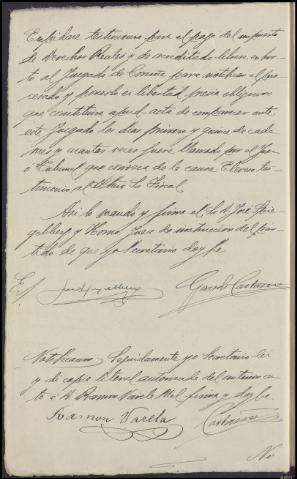 Expídase testimonio para el pago del impuesto
de Derechos Reales y de acreditado líbrese exhor
to al Juzgado de Coruña para notificar al pro
cesado y ponerlo en libertad, previa obligación
que constituirá apud acta de comparecer ante
este Juzgado los días primero y quince de cada
mes y cuantas veces fuere llamado por el Juez
o Tribunal que conozca de la causa. Elévese tes
timonio al Ilmo. Sr. Fiscal.
Así lo mandó y firma el Sr. D. José
y Juez de instrucción del par
tido de que yo Secretario doy fe
Notificación Seguidamente yo Secretario leí
y dí copia literal autorizada del anterior au
to á D. Ramón Varela firma y doy fe
Ramon Varela
No